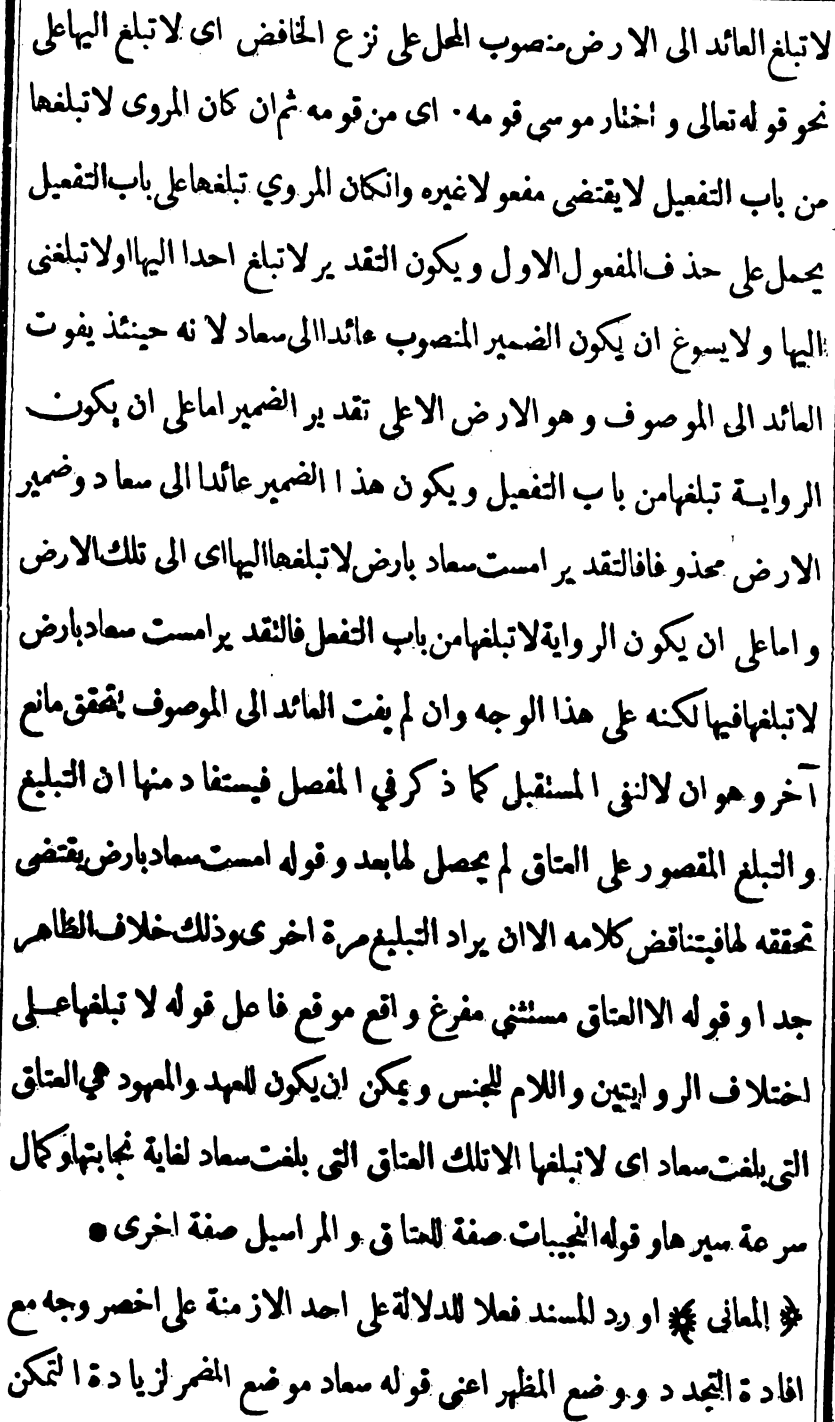 لاتبلغ العائد الى الارض منصوب المحل على نزع الخافض اى لاتبلغ اليها على
نحو قوله تعالى و اختار موسى قومه • اى من قومه ثم ان كان المروى لاتبلغها
من باب التفعيل لايقتضى مفعولا غيره وانكان المروي تبلغها على باب التفعيل
يحمل على حذف المفعول الاول ويكون التقدير لاتبلغ احدا اليها اولاتبلغنى
اليها ولايسوغ ان يكون الضمير المنصوب عائدا الى سعاد لانه حينئذ يفوت
العائد الى الموصوف وهو الارض الاعلى تقدير الضمير اما على ان يكون
الرواية تبلغها من باب التفعيل ويكون هذا الضمير عائدا الى سعاد وضمير
الارض محذوفا فالتقدير امست سعاد بارض لاتبلغها اليها اى الى تلك الارض
واما على ان يكون الرواية لاتبلغها من باب التفعل فالتقدير امست سعاد بارض
لاتبلغها فيها لكنه على هذا الوجه وان لم يفت العائد الى الموصوف يتحقق مانع
آخر وهو ان لالنفى المستقبل كما ذكر في المفصل فيستفاد منها ان التبليغ
و التبلغ المقصور على العتاق لم يحصل لهابعد وقوله امست سعاد بارض يقتضى
تحققه لها فيتناقض كلامه الاان يراد التبليغ مرة اخرى وذلك خلاف الظاهر
جدا وقوله الاالعتاق مستثنى مفرغ واقع موقع فاعل قوله لاتبلغها على
اختلاف الروايتين واللام للجنس ويمكن ان يكون للعهد والمعهود هي العتاق
التى بلغت سعاد اى لاتبلغها الاتلك العتاق التى بلغت سعاد لغاية نجابتها وكمال
سرعة سيرها وقوله النجيبات صفة للعتاق والمراسيل صفة اخرى •
﴿ المعانى ﴾ اورد المسند فعلا للدلالة على احد الازمنة على اخصر وجه مع
افادة التجدد ووضع المظهر اعنى قوله سعاد موضع المضمر لزيادة التمكن